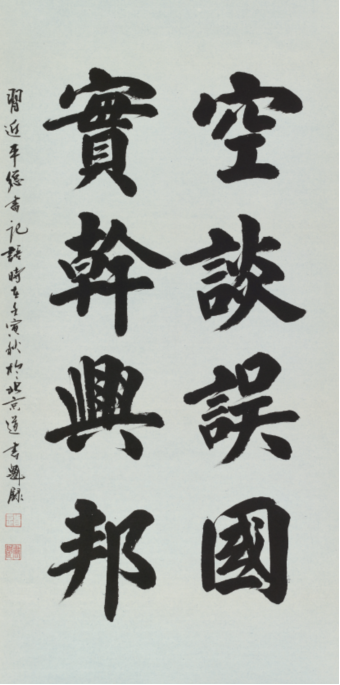 空談誤國
實幹興邦
習近平總書記語時在壬寅秋於北京道書興錄